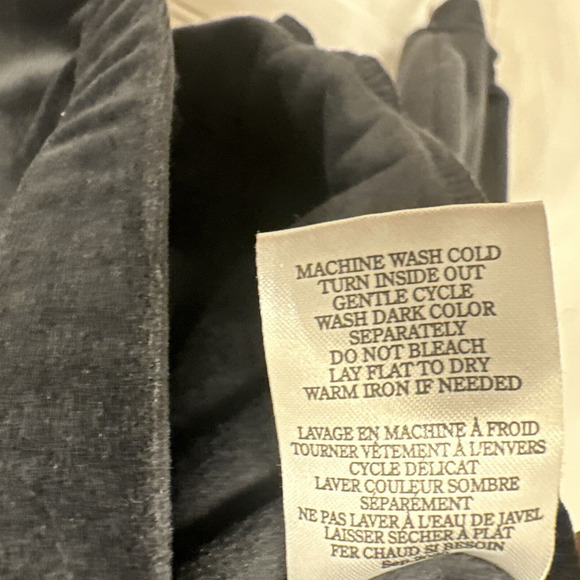 MACHINE WASH COLD
TURN INSIDE OUT
GENTLE CYCLE
WASH DARK COLOR
SEPARATELY
DO NOT BLEACH
LAY FLAT TO DRY
WARM IRON IF NEEDED
LAVAGE EN MACHINE À FROID
TOURNER VÊTEMENT À L'ENVERS
CYCLE DÉLICAT
LAVER COULEUR SOMBRE
SÉPARÉMENT
NE PAS LAVER À L'EAU DE JAVEL
LAISSER SÉCHER À PLAT
FER CHAUD SI BESOIN